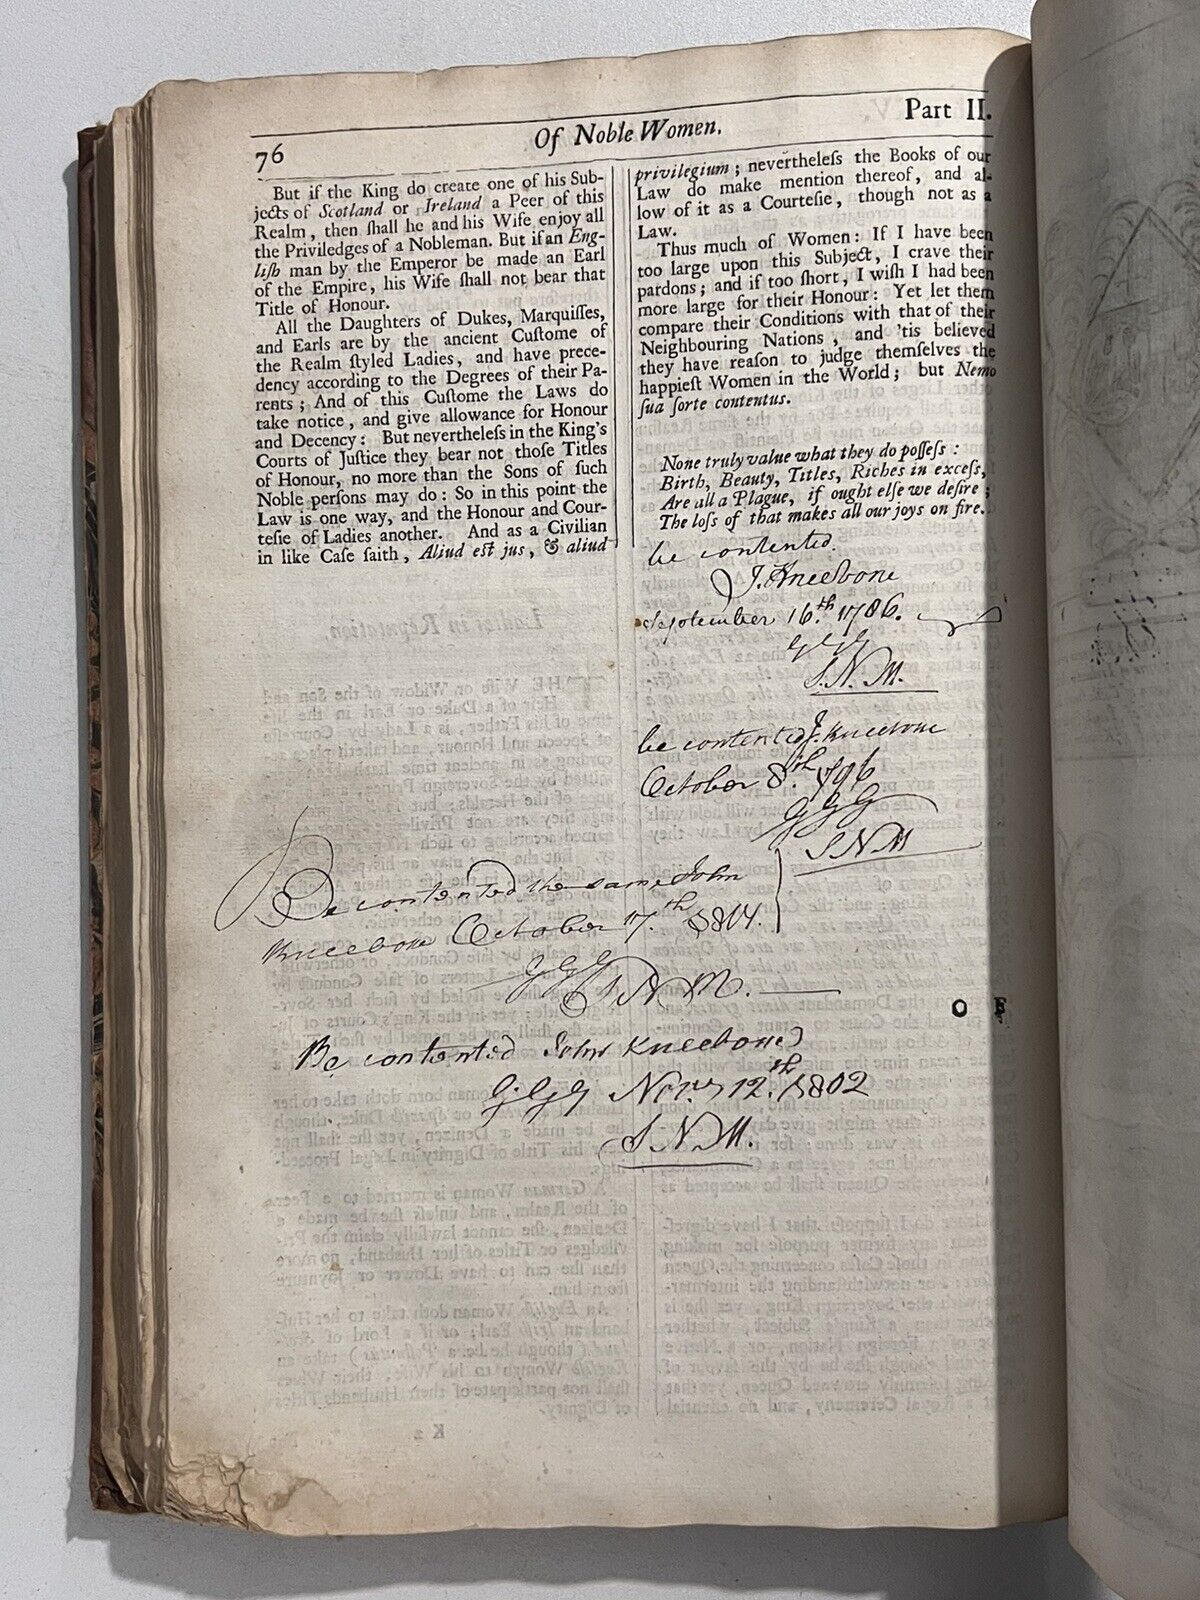 76
Of Noble Women.
Part II.
But if the King do create one of his Sub-
jects of Scotland or Ireland a Peer of this
Realm, then ſhall he and his Wife enjoy all
the Priviledges of a Nobleman. But if an Eng-
liſh man by the Emperor be made an Earl
of the Empire, his Wife ſhall not bear that
Title of Honour.
All the Daughters of Dukes, Marquiſſes,
and Earls are by the ancient Cuſtome of
the Realm ſtyled Ladies, and have prece-
dency according to the Degrees of their Pa-
rents; And of this Cuſtome the Laws do
take notice, and give allowance for Honour
and Decency: But nevertheleſs in the King's
Courts of Juſtice they bear not thoſe Titles
of Honour, no more than the Sons of ſuch
Noble perſons may do: So in this point the
Law is one way, and the Honour and Cour-
teſie of Ladies another. And as a Civilian
in like Caſe ſaith, Aliud eſt jus, & aliud
privilegium; nevertheleſs the Books of our
Law do make mention thereof, and al-
low of it as a Courteſie, though not as a
Law.
Thus much of Women: If I have been
too large upon this Subject, I crave their
pardons; and if too ſhort, I wiſh I had been
more large for their Honour: Yet let them
compare their Conditions with that of their
Neighbouring Nations, and 'tis believed
they have reaſon to judge themſelves the
happieſt Women in the World; but Nemo
ſua ſorte contentus.
None truly value what they do poſſeſs:
Birth, Beauty, Titles, Riches in exceſs,
Are all a Plague, if ought elſe we deſire;
The loſs of that makes all our joys on fire.
be contented.
J. Kneebone
September 16.th 1786.
G G G
S. N. M.
be contented J. Kneebone
October 8.th 1796
G G G
S N M
Be contented the same John
Kneebone October 17.th 1814.
G G G
S N M.
Be contented John Kneebone
G. G G Nov.r 12.th 1802
S N M.
O F